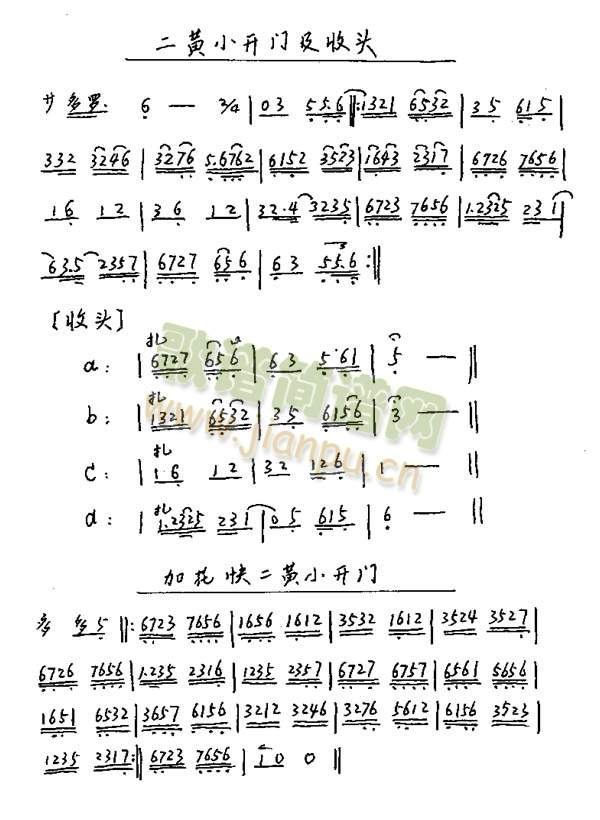 二黄小开门及收头
サ 多罗. 6 — 3/4 | 0 3 5 5.6 ‖: 1321 6532 | 3 5 6 1 5 |
332 3246 | 3276 5.6762 | 6152 3523 | 1643 2317 | 6726 7656 |
1 6 1 2 | 3 6 1 2 | 32.4 3235 | 6723 7656 | 1.2325 231 |
63.5 2357 | 6727 656 | 6 3 55.6 :‖
[收头]
a: | 扎 6727 656 | 6 3 5.61 | 5 — ‖
b: | 扎 1321 6532 | 35 6156 | 3 — ‖
c: | 扎 1.6 12 | 32 126 | 1 — ‖
d: | 扎 1.2325 231 | 0 5 615 | 6 — ‖
加花快二黄小开门
多 多 5 ‖: 6723 7656 | 1656 1612 | 3532 1612 | 3524 3527 |
6726 7656 | 1.235 2316 | 1235 2357 | 6727 6757 | 6561 5656 |
1651 6532 | 3657 6156 | 3212 3246 | 3276 5612 | 6156 3523 |
1235 2317 :‖ 6723 7656 | 1 0 0 ‖
歌谱简谱网
www.jianpu.cn